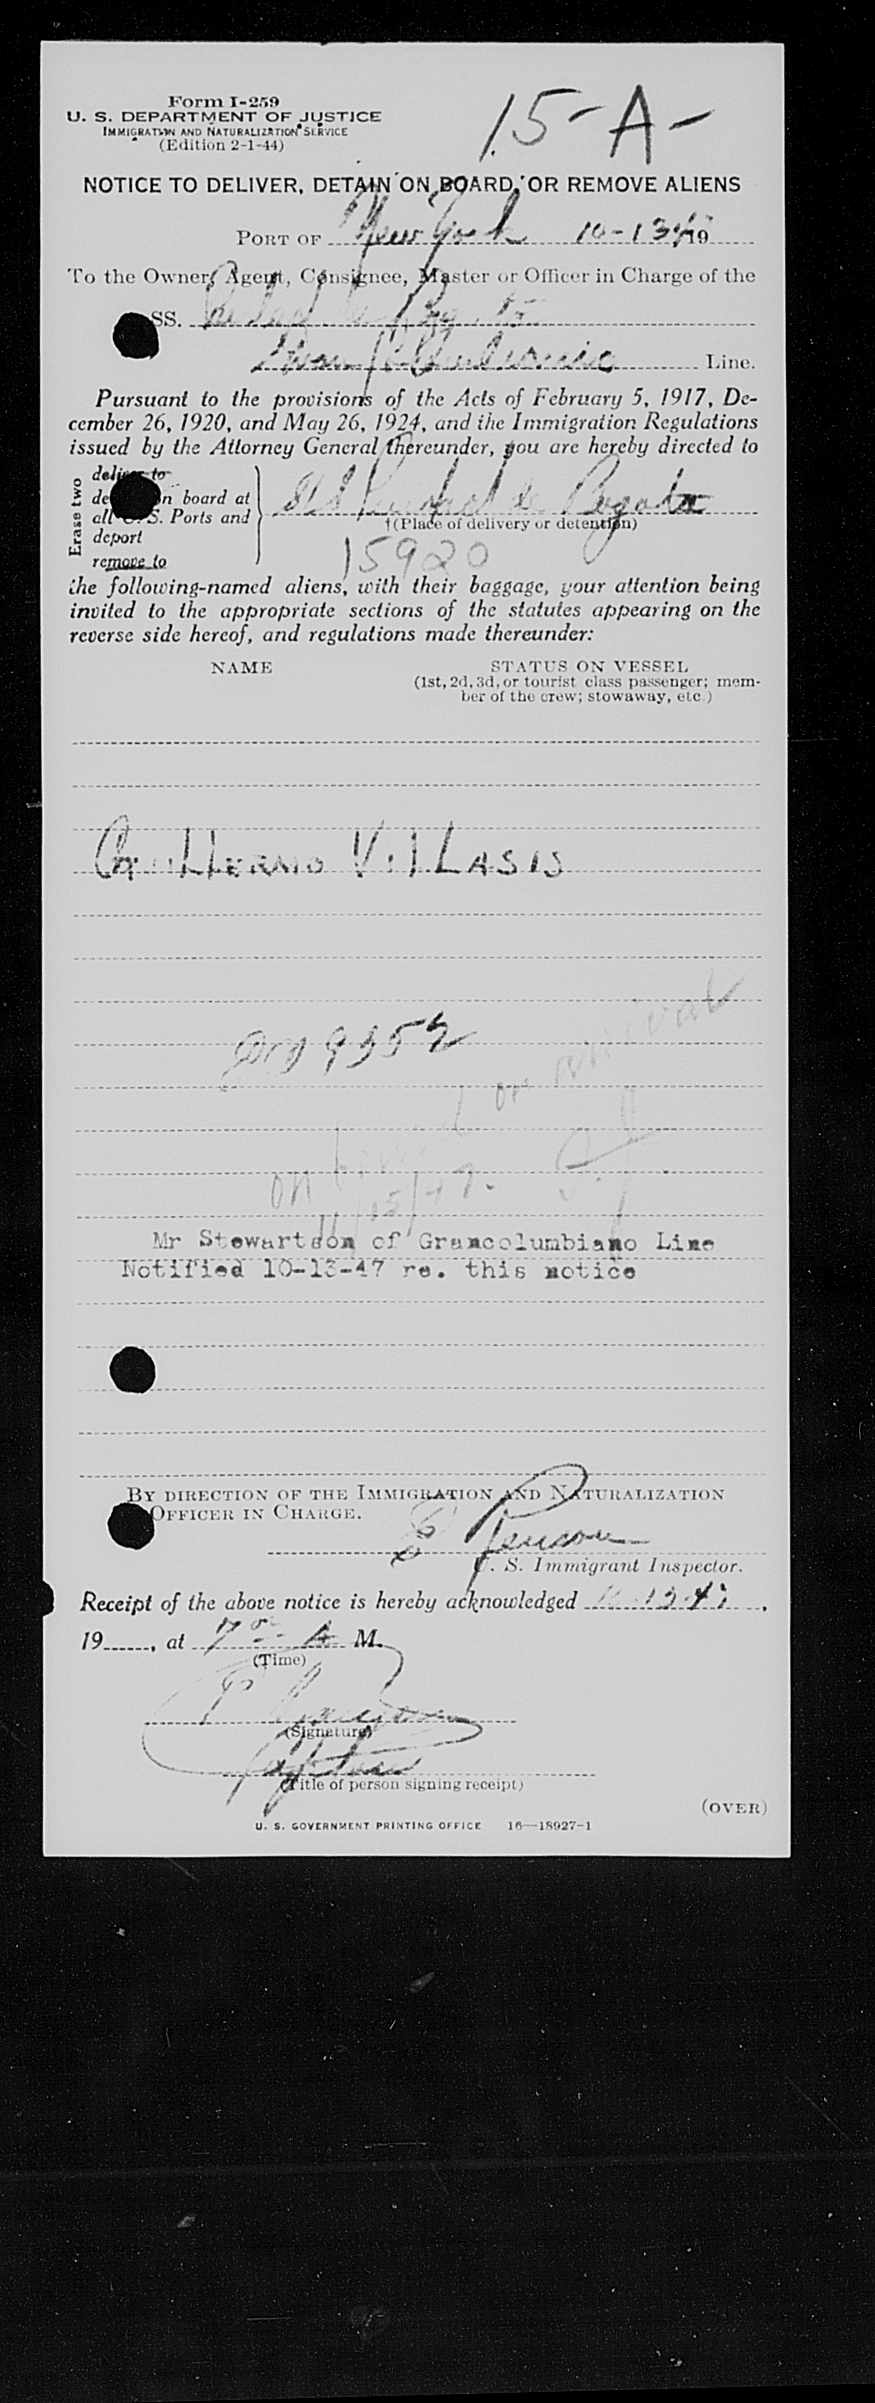 Form I-259
U. S. DEPARTMENT OF JUSTICE
IMMIGRATION AND NATURALIZATION SERVICE
(Edition 2-1-44)
15-A-
NOTICE TO DELIVER, DETAIN ON BOARD, OR REMOVE ALIENS
PORT OF New York 10-13-47 19
To the Owner, Agent, Consignee, Master or Officer in Charge of the
SS. de
Line.
Pursuant to the provisions of the Acts of February 5, 1917, De-
cember 26, 1920, and May 26, 1924, and the Immigration Regulations
issued by the Attorney General thereunder, you are hereby directed to
Erase two
deliver to
on board at
all U. S. Ports and
deport
remove to
SS de Bogota
†(Place of delivery or detention)
15920
the following-named aliens, with their baggage, your attention being
invited to the appropriate sections of the statutes appearing on the
reverse side hereof, and regulations made thereunder:
NAME
STATUS ON VESSEL
(1st, 2d, 3d, or tourist class passenger; mem-
ber of the crew; stowaway, etc.)
GuiLLERMO ViLLASIS
9352
on board on arrival
Mr Stewartson of Grancolumbiano Line
Notified 10-13-47 re. this notice
BY DIRECTION OF THE IMMIGRATION AND NATURALIZATION
OFFICER IN CHARGE.
U. S. Immigrant Inspector.
Receipt of the above notice is hereby acknowledged 10-13-47,
19, at 7 A M.
(Time)
(Signature)
(Title of person signing receipt)
(OVER)
U. S. GOVERNMENT PRINTING OFFICE 16—18927-1